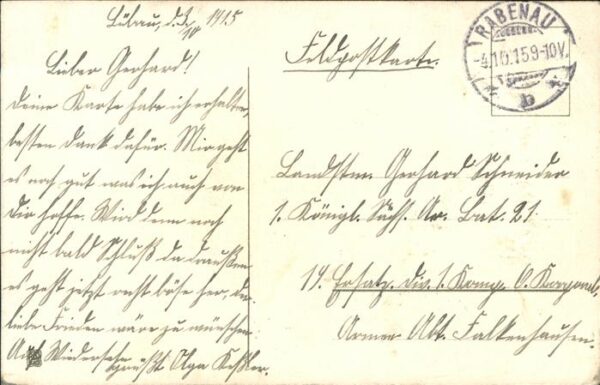 Lübau, d. 3./10. 1915
Lieber Gerhard!
Deine Karte habe ich erhalten,
besten Dank dafür. Mir geht
es noch gut was ich auch von
Dir hoffe. Wird denn noch
nicht bald Schluß da draußen
es geht jetzt recht böse her, der
liebe Frieden wäre zu wünschen
Auf Wiedersehn grüßt Olga Keßler.
Feldpostkarte.
RABENAU
-4.10.15 9-10V.
b
Landstm. Gerhard Schneider
1. Königl. Sächs. Ar. Bat. 21.
19. Ersatz. Div. 1. Komp. 6. Korporal.
Armee Abt. Falkenhausen.